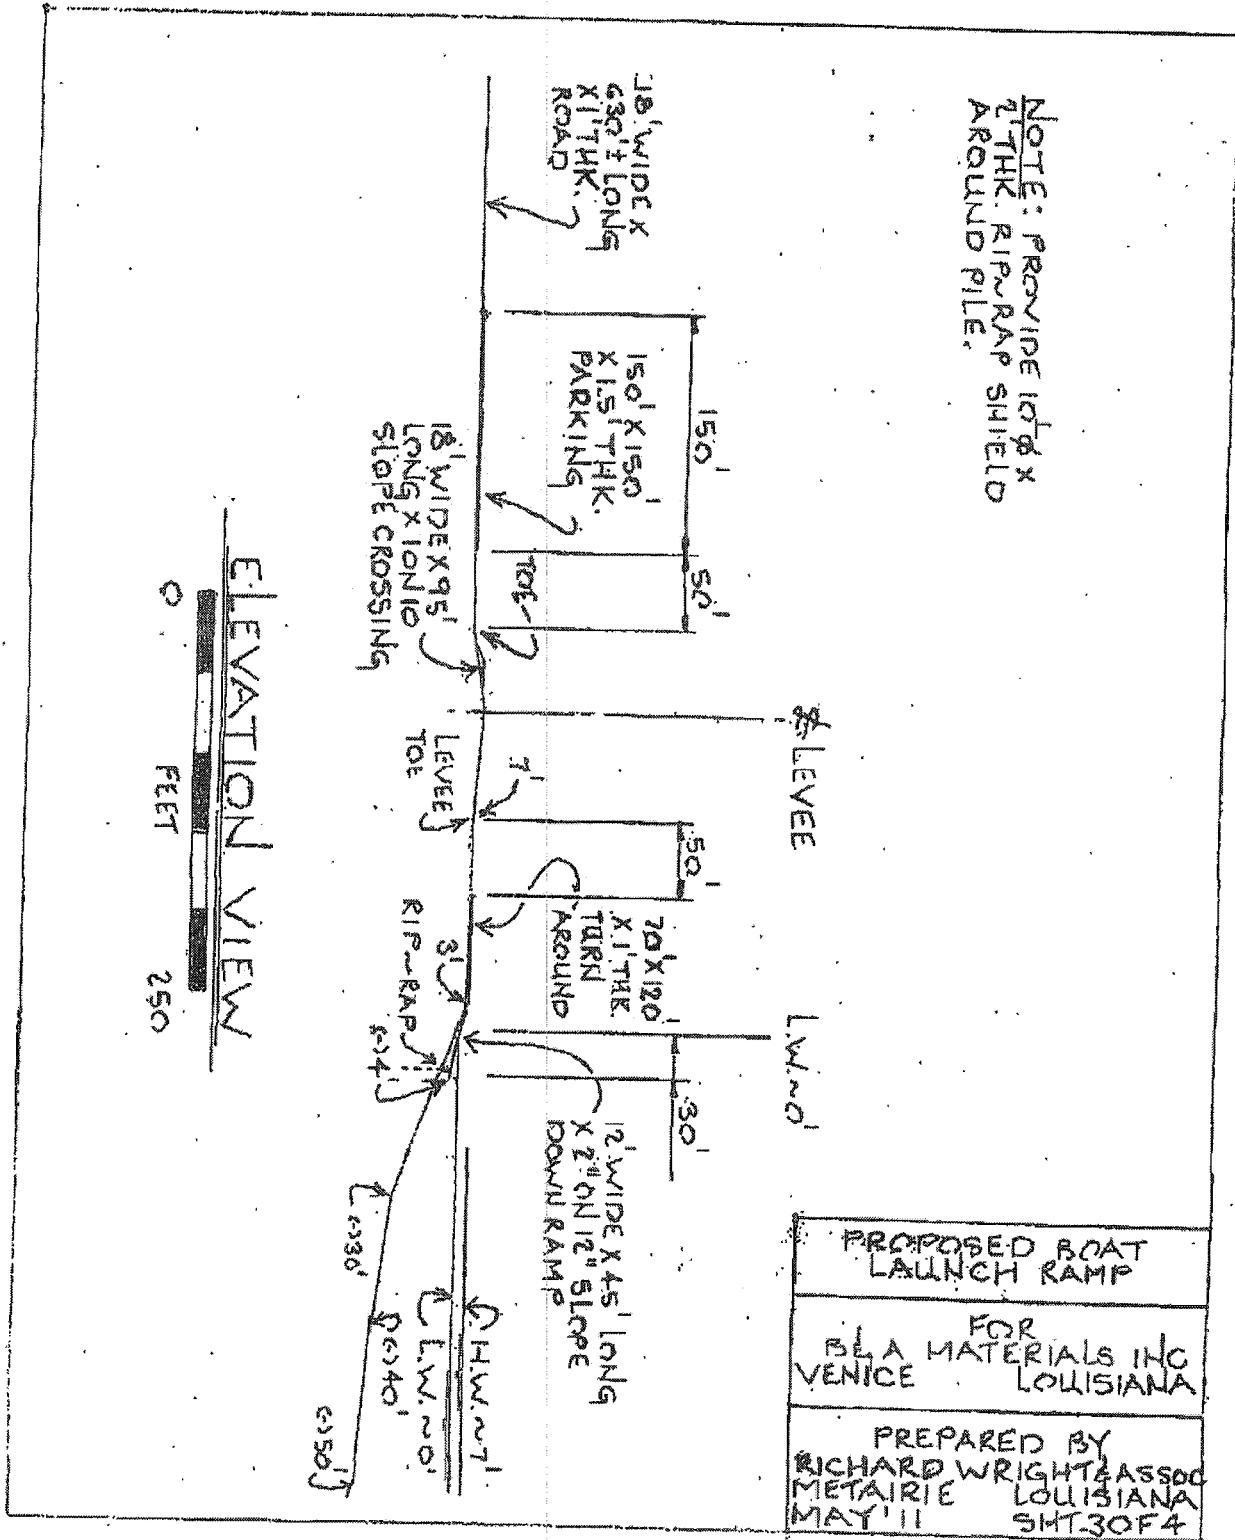 NOTE: PROVIDE 10'ø X
2' THK. RIP~RAP SHIELD
AROUND PILE.
18' WIDE X
630'± LONG
X 1' THK.
ROAD
150'
150' X 150'
X 1.5' THK.
PARKING
50'
TOE
18' WIDE X 95'
LONG X 1 ON 10
SLOPE CROSSING
℄ LEVEE
7'
LEVEE
TOE
50'
70' X 120'
X 1' THK.
TURN
AROUND
3'
RIP~RAP
(-)4'
L.W.~0'
30'
12' WIDE X 45' LONG
X 2" ON 12" SLOPE
DOWN RAMP
H.W.~7'
L.W.~0'
(-)30'
(-)40'
(-)50'
ELEVATION VIEW
0 FEET 250
PROPOSED BOAT
LAUNCH RAMP
FOR
BLA MATERIALS INC
VENICE LOUISIANA
PREPARED BY
RICHARD WRIGHT & ASSOC
METAIRIE LOUISIANA
MAY '11 SHT. 3 OF 4